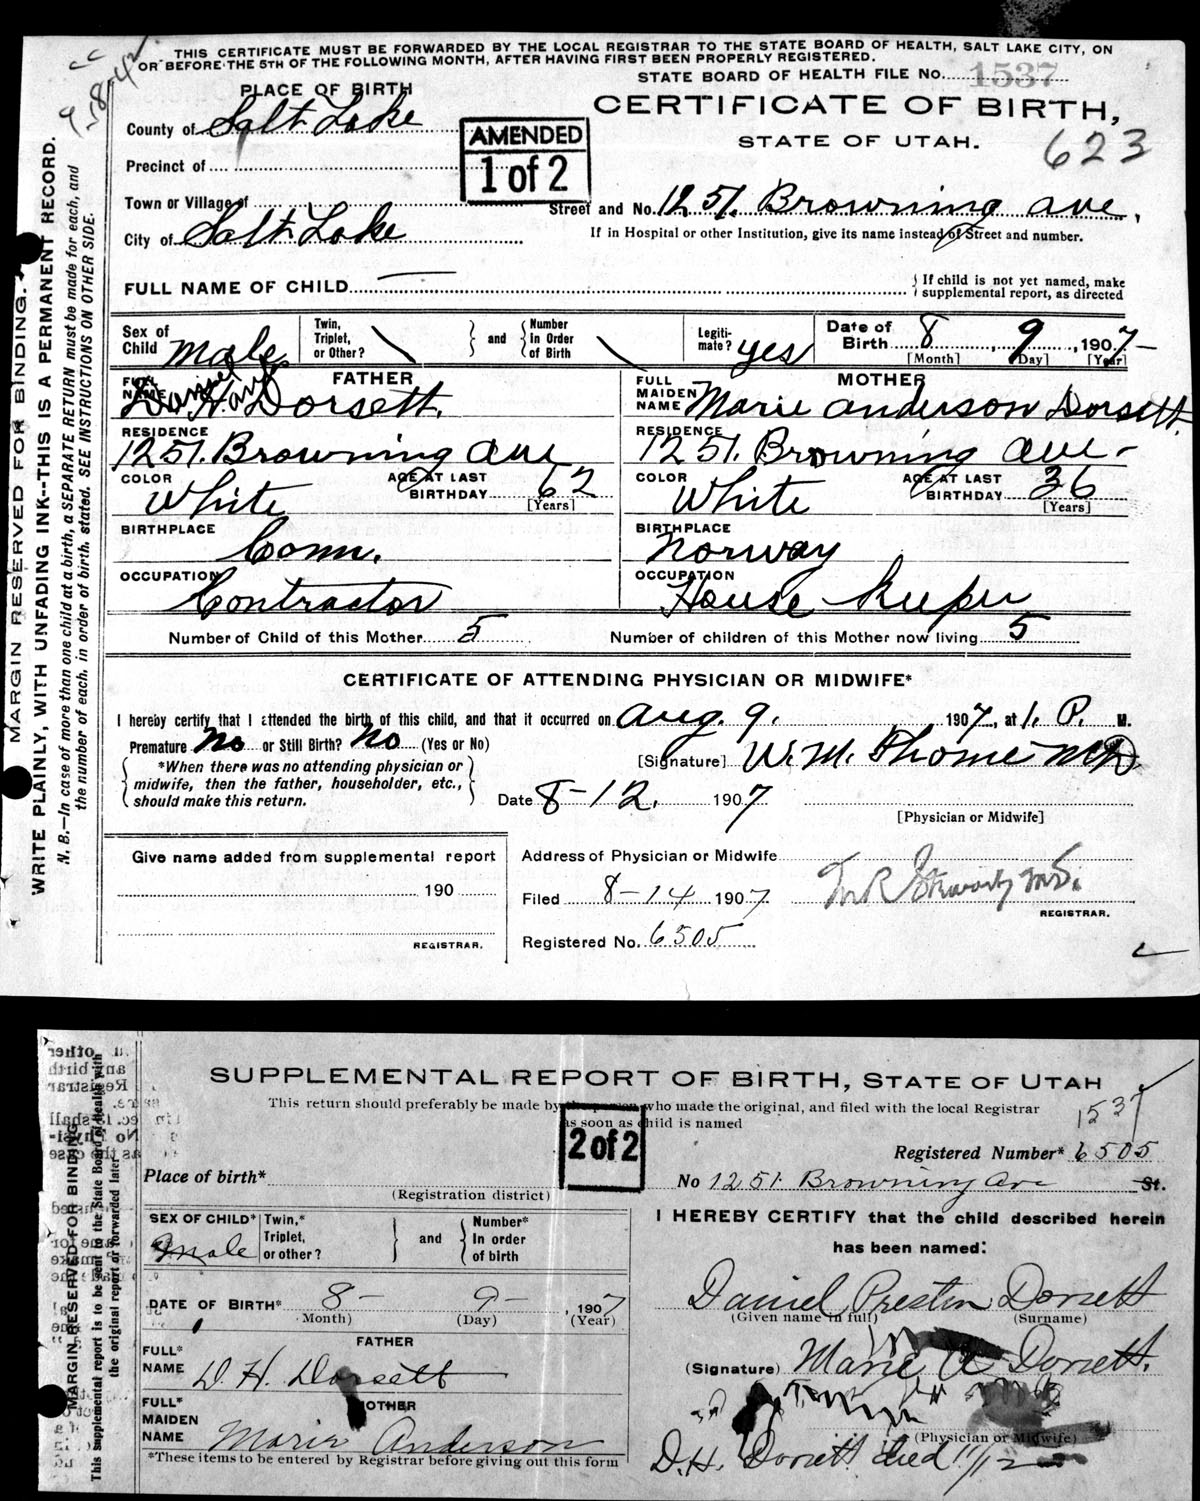 THIS CERTIFICATE MUST BE FORWARDED BY THE LOCAL REGISTRAR TO THE STATE BOARD OF HEALTH, SALT LAKE CITY, ON
OR BEFORE THE 5TH OF THE FOLLOWING MONTH, AFTER HAVING FIRST BEEN PROPERLY REGISTERED.
STATE BOARD OF HEALTH FILE No. 1537
PLACE OF BIRTH
CERTIFICATE OF BIRTH,
County of Salt Lake
AMENDED
1 of 2
STATE OF UTAH.
623
Precinct of
Town or Village of
Street and No. 1251. Browning ave.
City of Salt Lake
If in Hospital or other Institution, give its name instead of Street and number.
FULL NAME OF CHILD
If child is not yet named, make
supplemental report, as directed
Sex of Child male
Twin, Triplet, or Other?
and
Number In Order of Birth
Legiti- mate? yes
Date of Birth 8 9, 1907
[Month] [Day] [Year]
FATHER
FULL NAME Daniel H. Dorsett
MOTHER
FULL MAIDEN NAME Marie anderson Dorsett
RESIDENCE 1251. Browning Ave
RESIDENCE 1251. Browning Ave-
COLOR White
AGE AT LAST BIRTHDAY 62 [Years]
COLOR White
AGE AT LAST BIRTHDAY 36 [Years]
BIRTHPLACE Conn.
BIRTHPLACE Norway
OCCUPATION Contractor
OCCUPATION House keeper
Number of Child of this Mother 5
Number of children of this Mother now living 5
CERTIFICATE OF ATTENDING PHYSICIAN OR MIDWIFE*
I hereby certify that I attended the birth of this child, and that it occurred on Aug. 9. 1907, at 1. P. M.
Premature No or Still Birth? No (Yes or No)
*When there was no attending physician or
midwife, then the father, householder, etc.,
should make this return.
[Signature] W. M. Thome MD
Date 8-12. 1907
[Physician or Midwife]
Give name added from supplemental report
190
REGISTRAR.
Address of Physician or Midwife
Filed 8-14 1907
REGISTRAR.
Registered No. 6505
MARGIN RESERVED FOR BINDING.
WRITE PLAINLY, WITH UNFADING INK--THIS IS A PERMANENT RECORD.
N. B.—In case of more than one child at a birth, a SEPARATE RETURN must be made for each, and
the number of each, in order of birth, stated. SEE INSTRUCTIONS ON OTHER SIDE.
SUPPLEMENTAL REPORT OF BIRTH, STATE OF UTAH
This return should preferably be made by the person who made the original, and filed with the local Registrar
as soon as child is named
1537
2 of 2
Registered Number* 6505
Place of birth*
(Registration district)
No 1251 Browning Ave St.
SEX OF CHILD* Male
Twin,* Triplet, or other?
and
Number* In order of birth
I HEREBY CERTIFY that the child described herein
has been named:
DATE OF BIRTH* 8- 9-, 1907
(Month) (Day) (Year)
Daniel Preston Dorsett
(Given name in full) (Surname)
FATHER
FULL* NAME D. H. Dorsett
(Signature) Marie A Dorsett.
MOTHER
FULL* MAIDEN NAME Marie Anderson
(Physician or Midwife)
*These items to be entered by Registrar before giving out this form
D.H. Dorsett died 11/12
MARGIN RESERVED FOR BINDING
This supplemental report is to be sent to the State Board of Health with
the original report or forwarded later